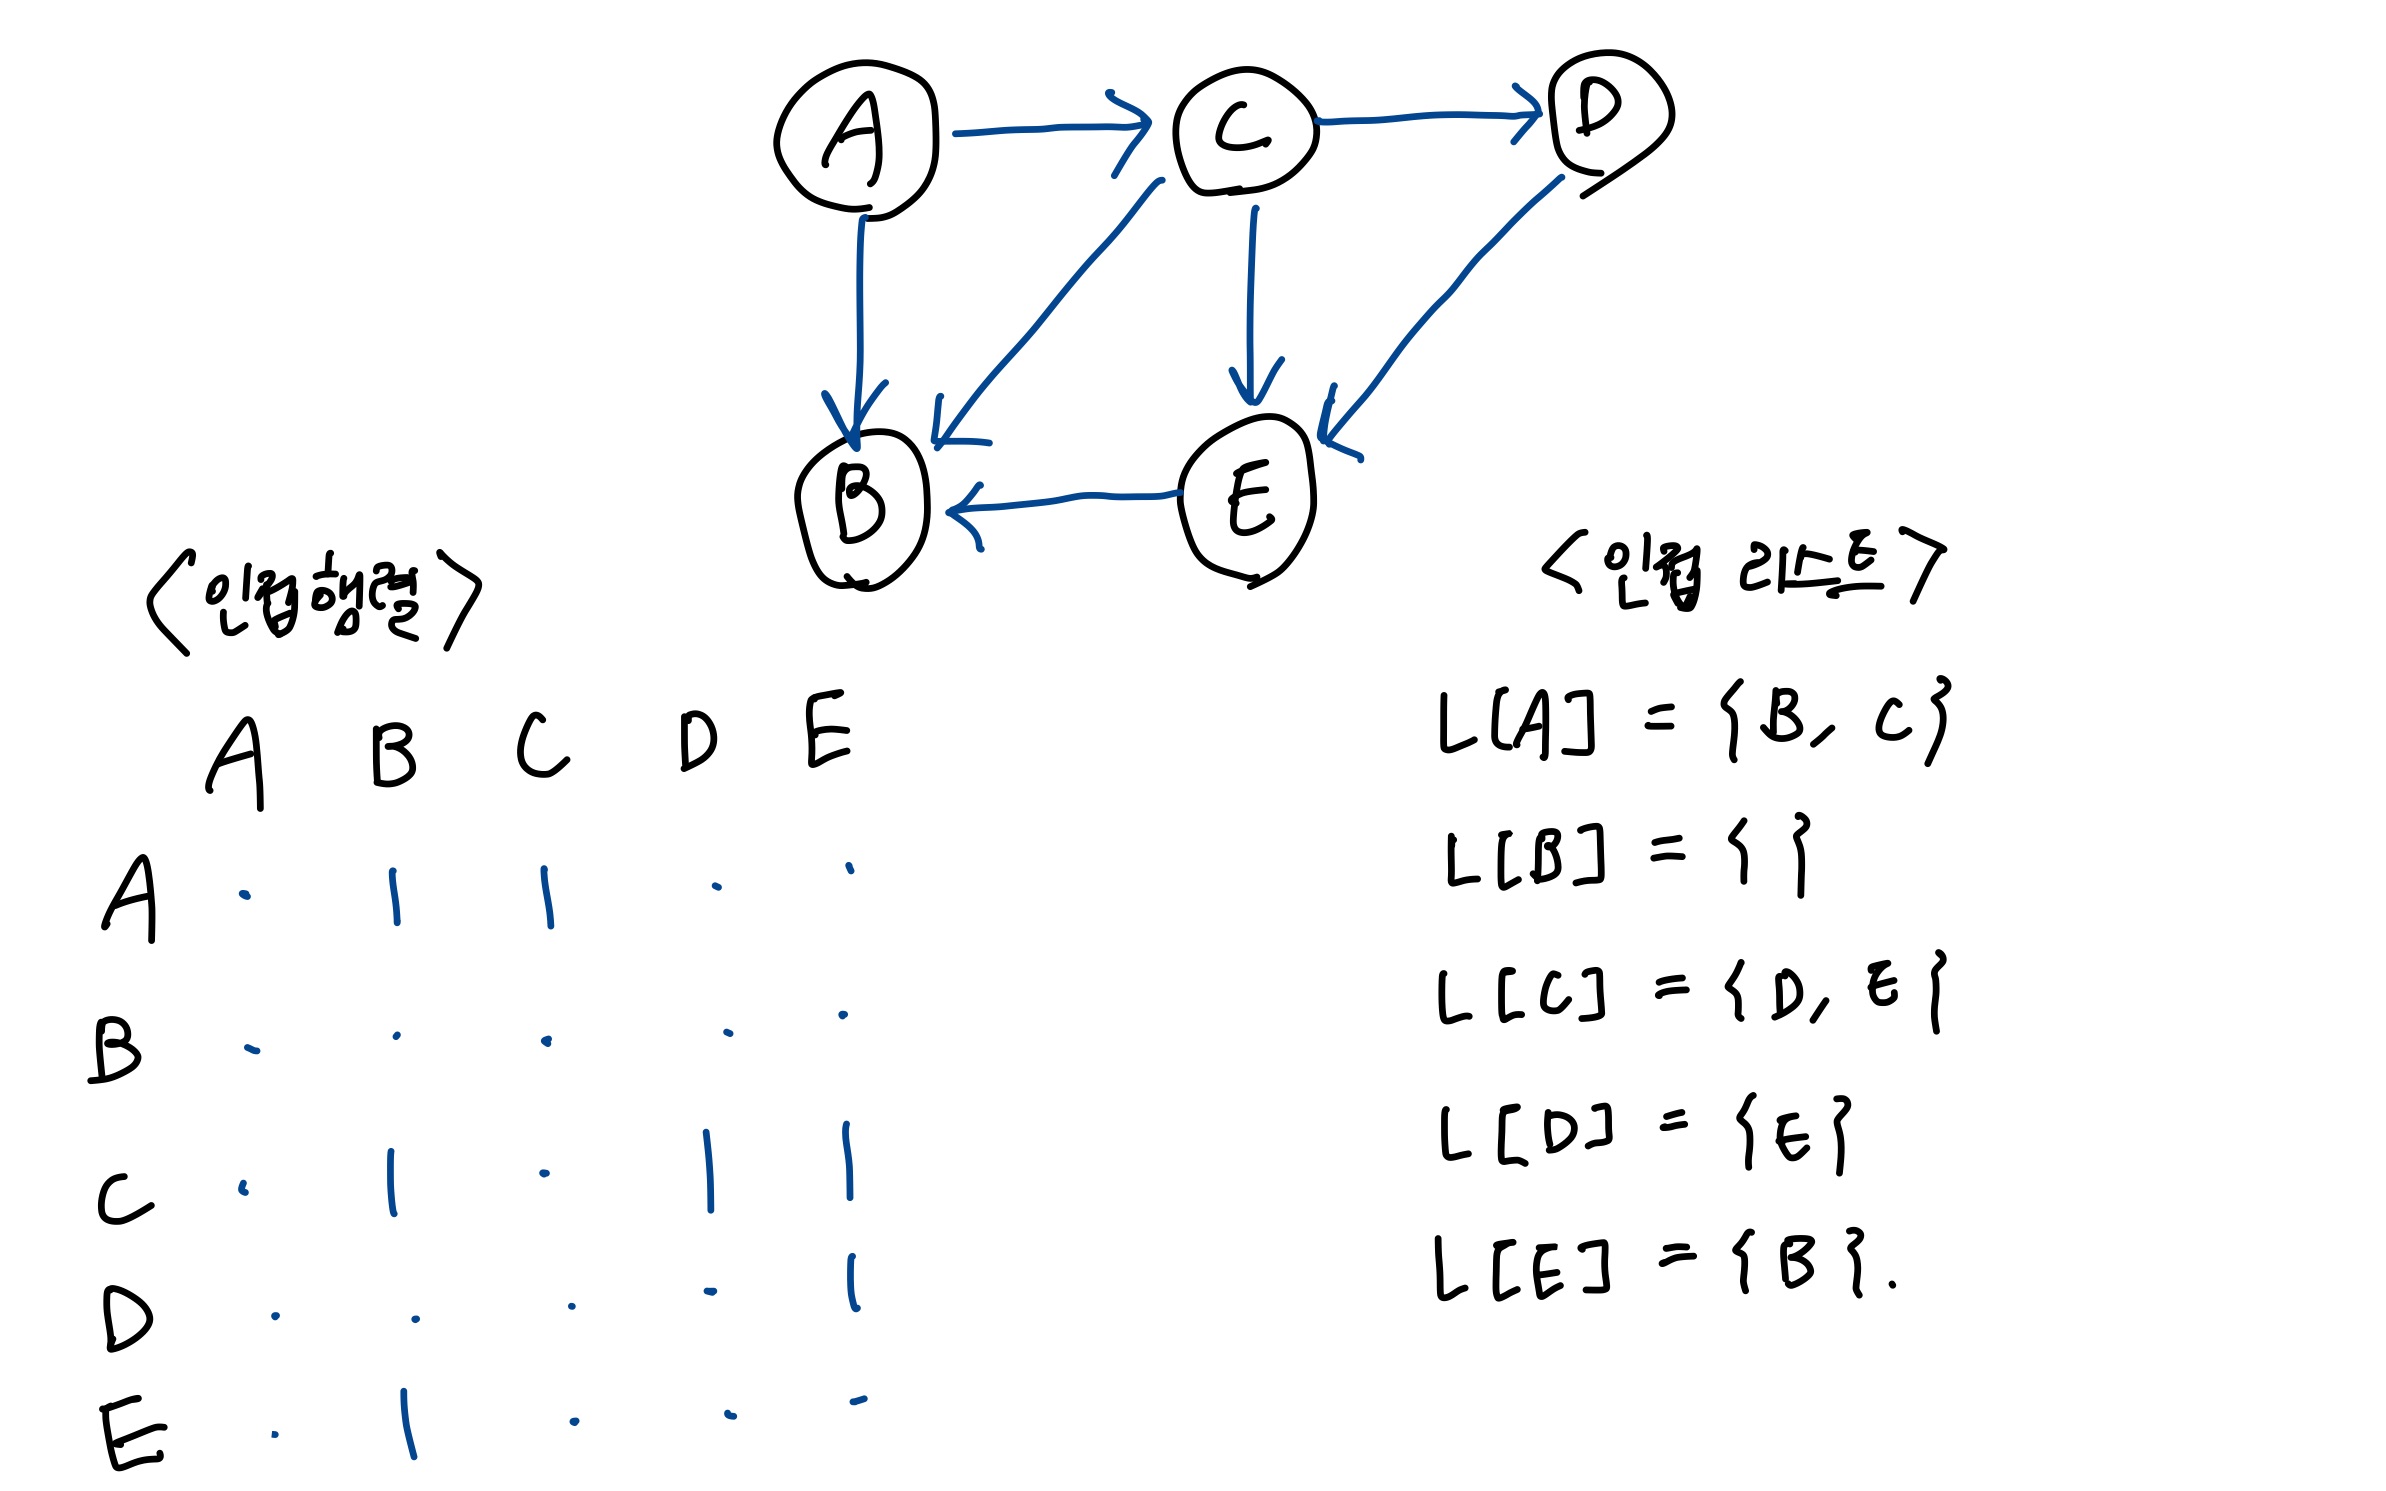 A C D
B E
<인접행렬>
A B C D E
A · 1 1 · ·
B · · · · ·
C · 1 · 1 1
D · · · · 1
E · 1 · · ·
<인접 리스트>
L[A] = {B, C}
L[B] = { }
L[C] = {D, E}
L[D] = {E}
L[E] = {B}.